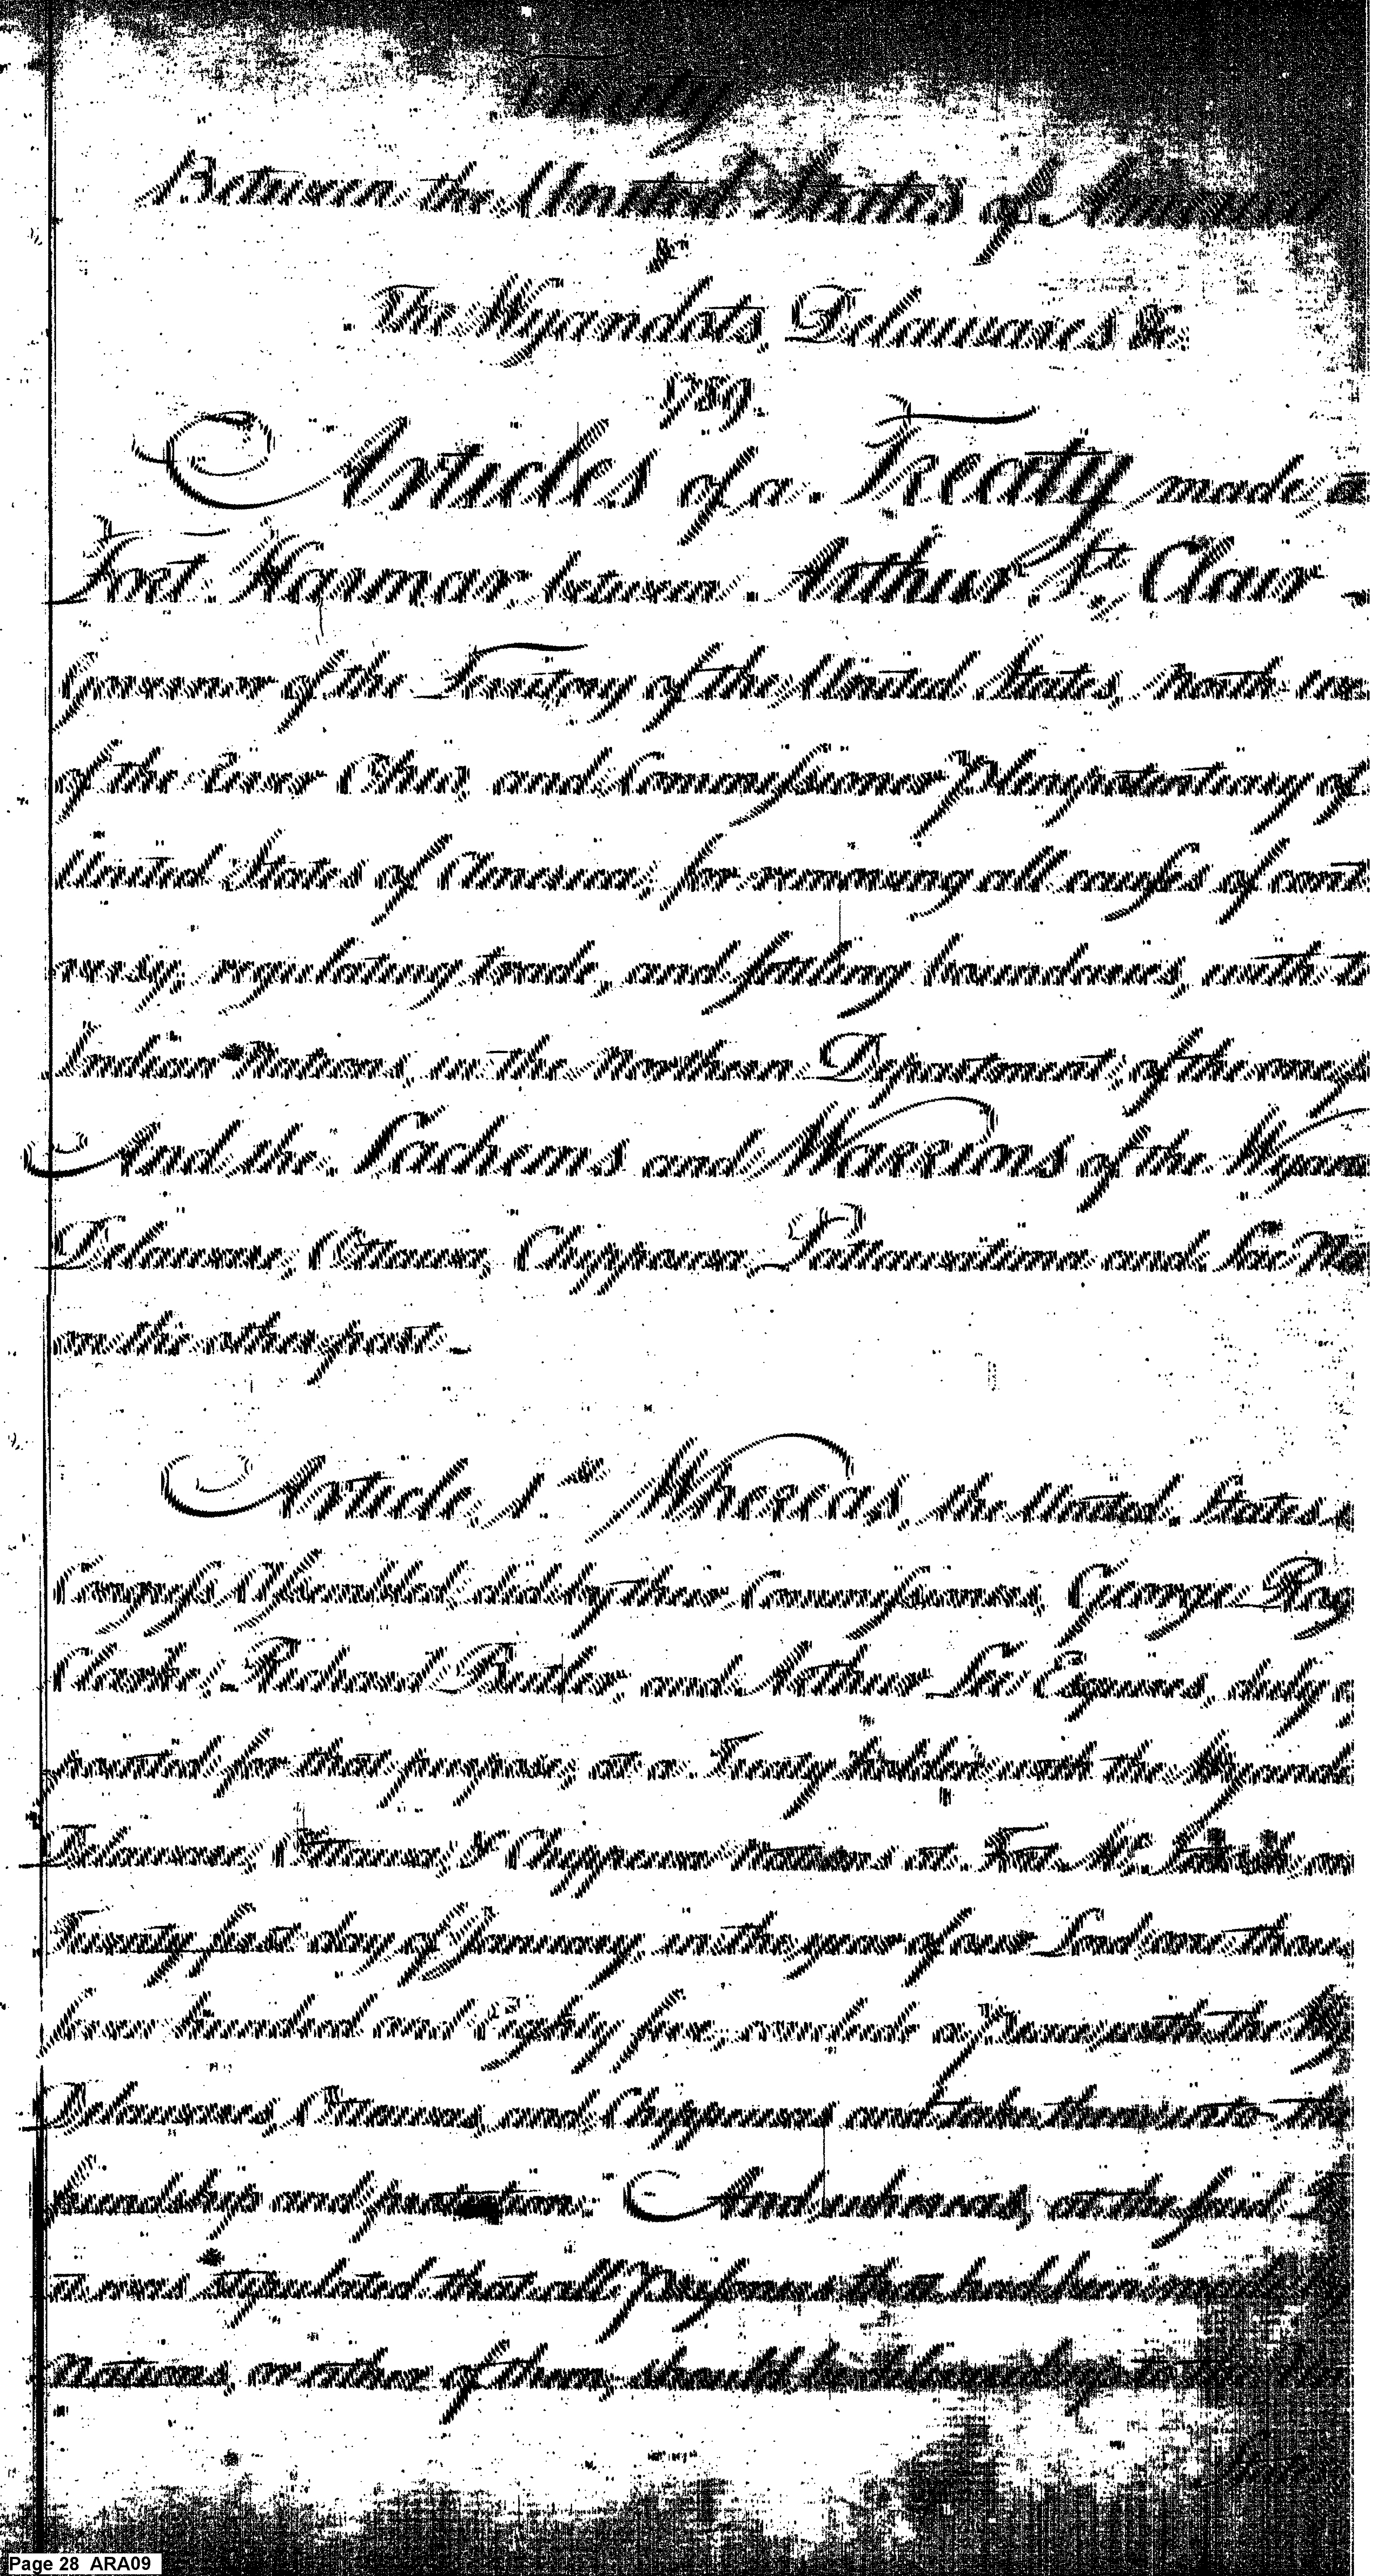 Treaty
Between the United States of America
&
The Wyandots, Delawares &c.
1789.
Articles of a Treaty made a
Fort Harmar between Arthur St. Clair
Governor of the Territory of the United States, North we
of the River Ohio, and Commissioner Plenipotentiary of
United States of America, for removing all causes of cont
versy, regulating trade, and settling boundaries, with t
Indian Nations, in the Northern Department, of the one p
And the Sachems and Warriors of the Wyan
Delaware, Ottawa, Chippewa, Pattawatima and Sac Na
on the other part.
Article 1st Whereas, the United States,
Congress Assembled, did by their Commissioners, George Rog
Clark, Richard Butler, and Arthur Lee Esquires, duly
pointed for that purpose, at a Treaty holden with the Wyand
Delaware, Ottawa, & Chippewa Nations at Fort Mc. Intosh on
Twenty first day of January, in the year of our Lord one thou
seven hundred and Eighty five, conclude a peace with the Wy
Delawares, Ottawas, and Chippewas and take them into the
friendship and protection: And whereas, at the said
it was stipulated that all Prisoners that had been made
Nations, or either of them, should be delivered up to the
Page 28 ARA09